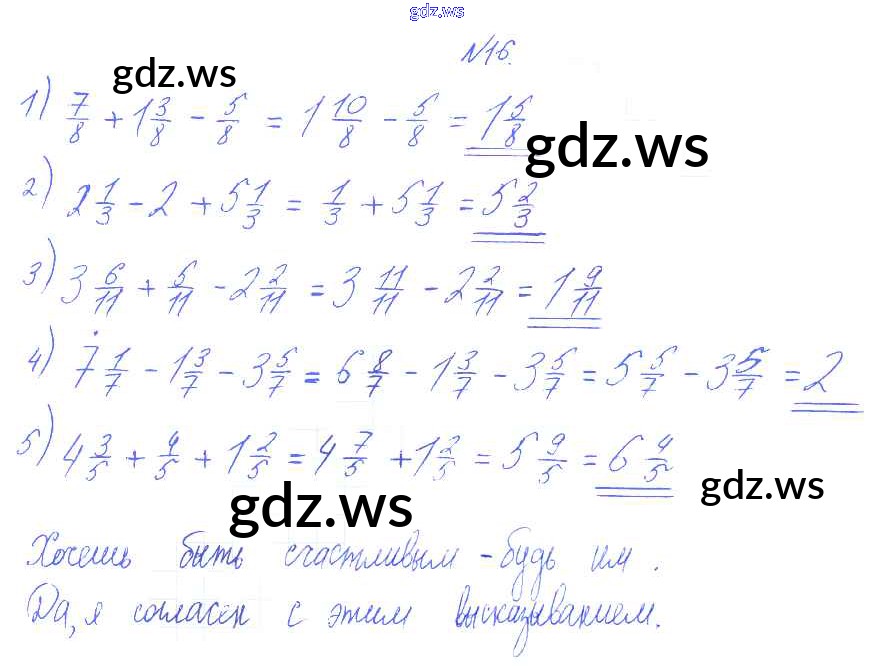 gdz.ws
№16.
gdz.ws
1) 7/8 + 1 3/8 - 5/8 = 1 10/8 - 5/8 = 1 5/8
gdz.ws
2) 2 1/3 - 2 + 5 1/3 = 1/3 + 5 1/3 = 5 2/3
3) 3 6/11 + 5/11 - 2 2/11 = 3 11/11 - 2 2/11 = 1 9/11
4) 7 1/7 - 1 3/7 - 3 5/7 = 6 8/7 - 1 3/7 - 3 5/7 = 5 5/7 - 3 5/7 = 2
5) 4 3/5 + 4/5 + 1 2/5 = 4 7/5 + 1 2/5 = 5 9/5 = 6 4/5
gdz.ws
gdz.ws
Хочешь быть счастливым - будь им.
Да, я согласен с этим высказыванием.